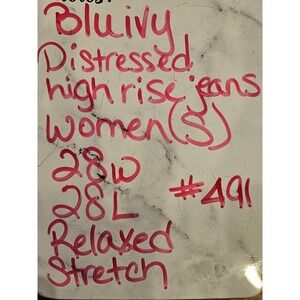 Bluivy
Distressed
high rise jeans
women(S)
28w
28L #491
Relaxed
Stretch